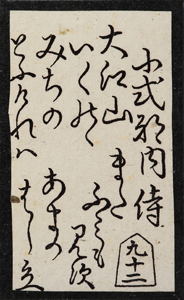 小式部内侍
大江山
いくの
みちの
とふけれハ
また
ふみも
見須
あまの
はし立
九十二